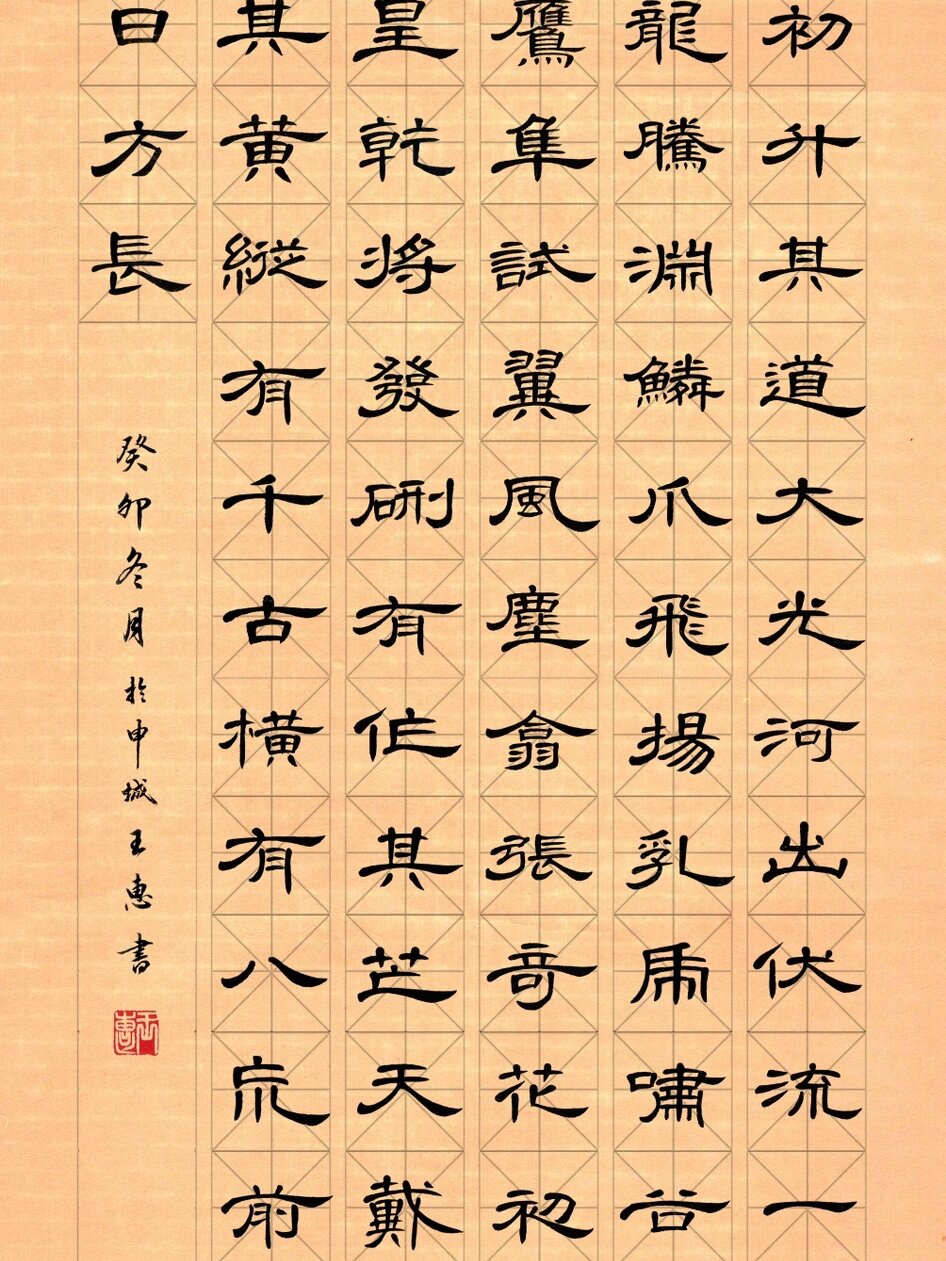 初升其道大光河出伏流一
龍騰淵鱗爪飛揚乳虎嘯谷
鷹隼試翼風塵翕張奇花初
皇乾將發硎有作其芒天戴
其黄縱有千古橫有八荒前
日方長
癸卯冬月於申城王惠書
王惠